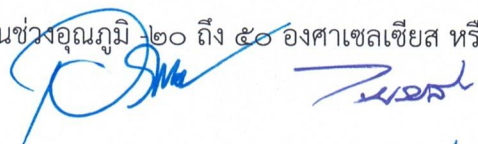 นช่วงอุณภูมิ -๒๐ ถึง ๕๐ องศาเซลเซียส หรื